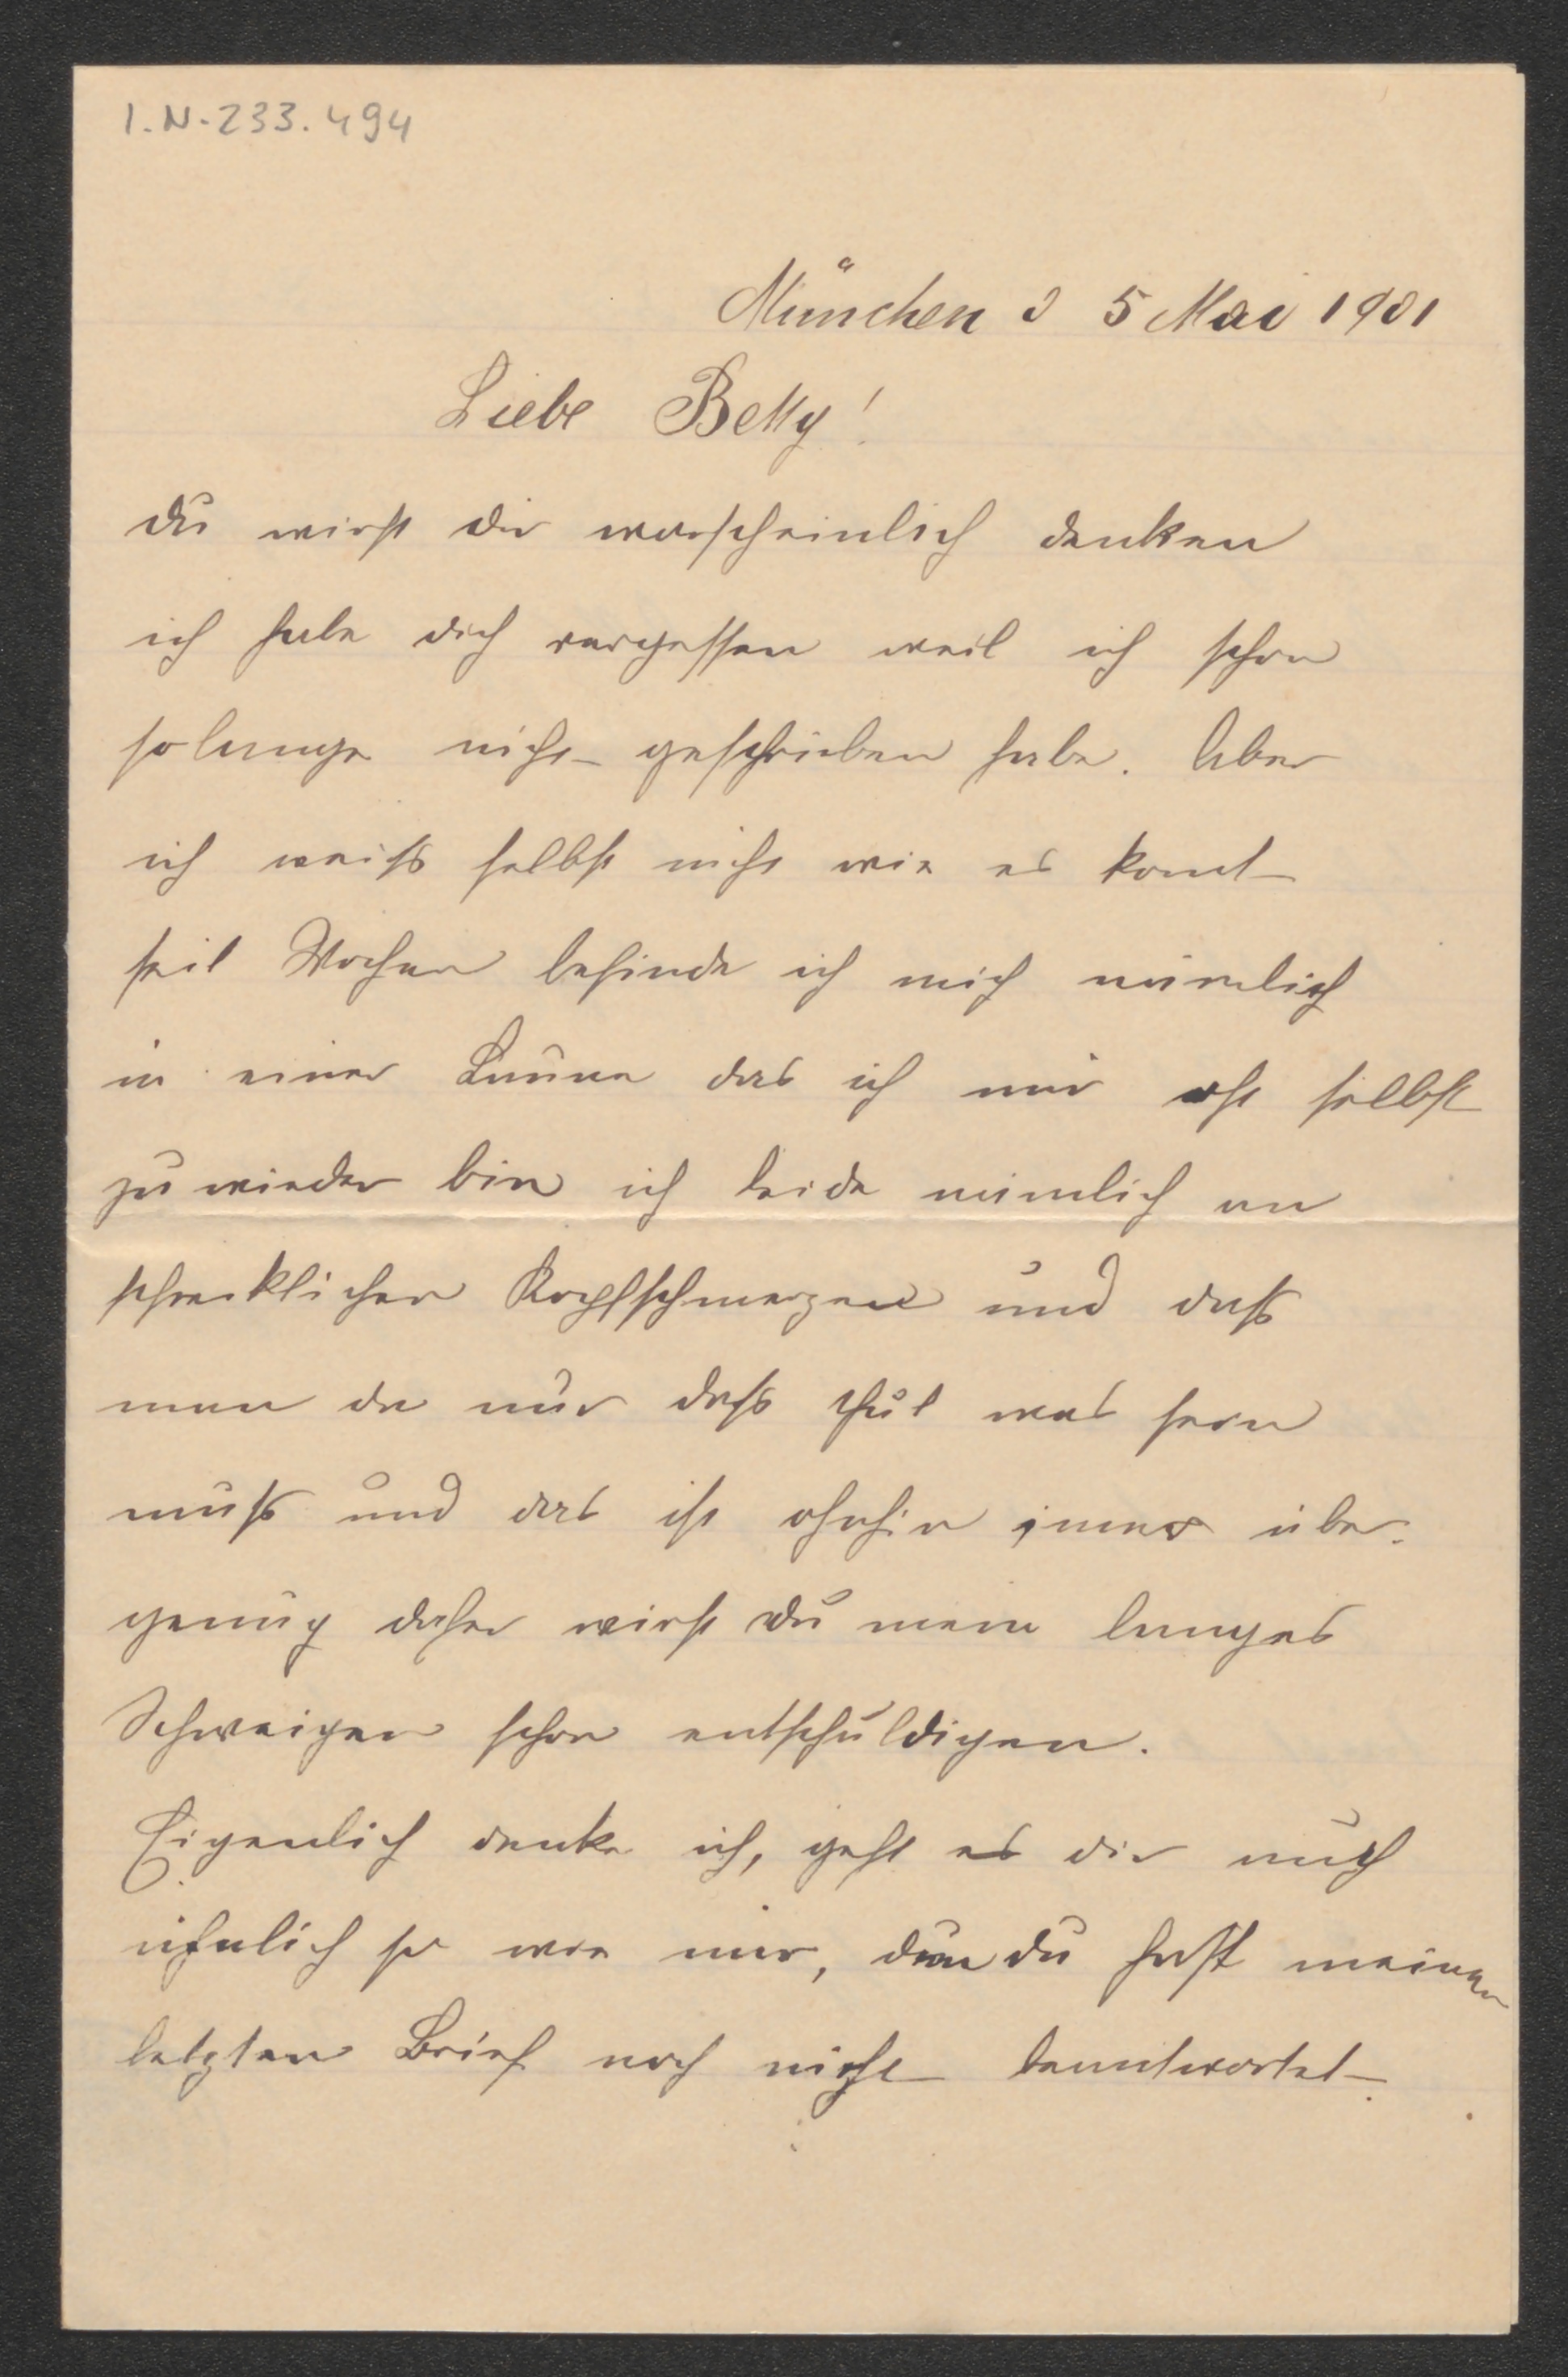 I.N. 233.494
München d 5 Mai 1901
Liebe Betty!
du wirst dir warscheinlich denken
ich habe dich vergessen weil ich schon
solange nicht geschrieben habe. Aber
ich weiß selbst nicht wie es komt
seit Wochen befinde ich mich nämlich
in einer Laune das ich mir oft selbst
zu wieder bin ich leide nämlich an
schrecklichen Kopfschmerzen und daß
man da nur daß thut was sein
muß und das ist ohnhin immer über
genug daher wirst du mein langes
Schweigen schon entschuldigen.
Eigenlich denke ich, geht es dir auch
ähnlich so wie mir, den du hast meinen
letzten Brief noch nicht beantwortet.